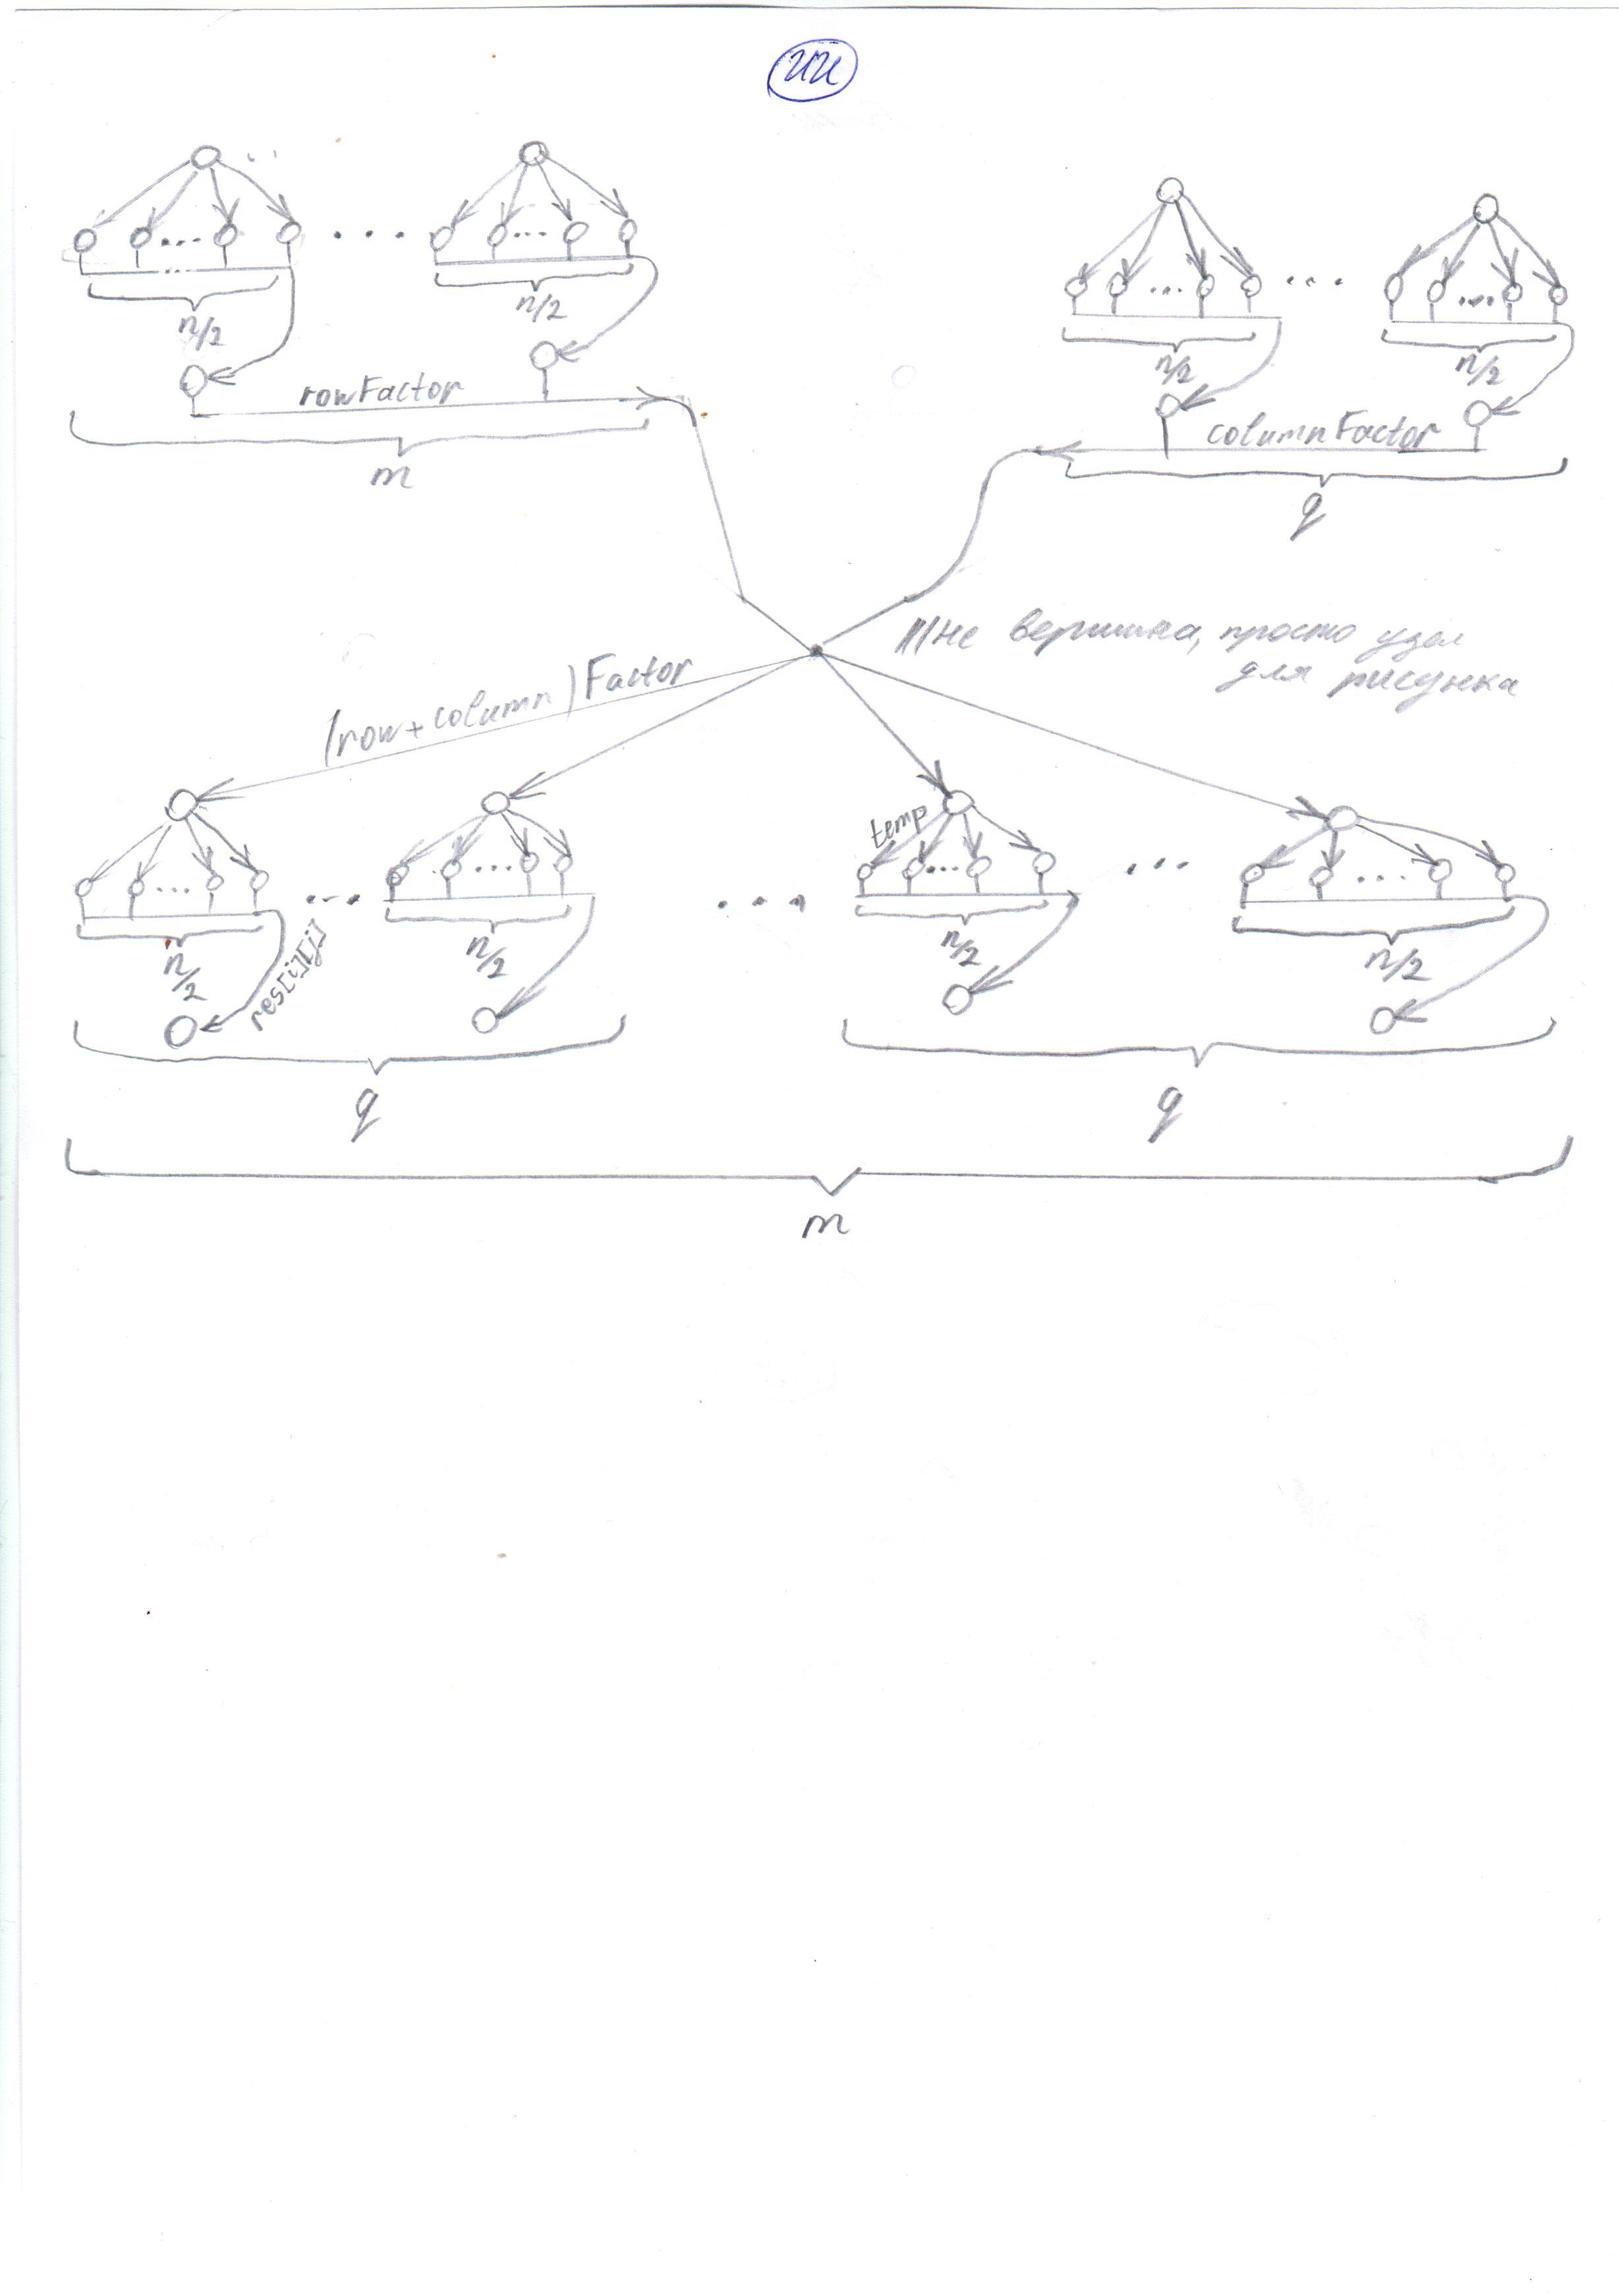 ИИ
n/2
n/2
n/2
n/2
rowFactor
columnFactor
m
q
///не вершина, просто узел
для рисунка
(row+column)Factor
temp
n/2
n/2
n/2
n/2
res[i][j]
q
q
m